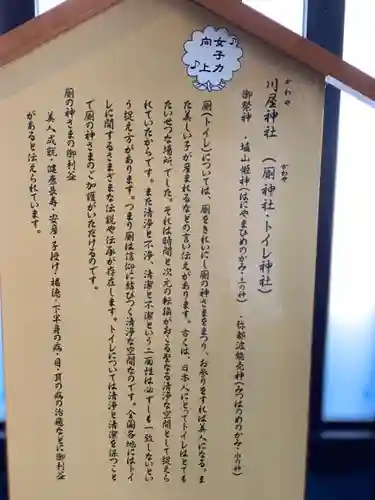 女子力
向上
川屋神社 (厠神社・トイレ神社)
かわや
かわや
御祭神 ・埴山姫神(はにやまひめのかみ・土の神) ・弥都波能売神(みつはのめのかみ・水の神)
厠(トイレ)については、厠をきれいにし厠の神さまをまつり、お参りをすれば美人になる。ま
た美しい子が産まれるなどの言い伝えがあります。古くは、日本人にとってトイレはとても
たいせつな場所でした。それは時間と次元の転換がおこる聖なる清浄な空間として捉えら
れていたからです。また清浄と不浄、清潔と不潔という二面性は必ずしも一致しないとい
う捉え方があります。つまり厠は信仰に結びつく清浄な空間なのです。全国各地にはトイ
レに関するさまざまな伝説や伝承が存在します。トイレについては清浄と清潔を保つこと
で厠の神さまのご加護がいただけるのです。
厠の神さまの御利益
美人成就・健康長寿・安産・子授け・福徳・下半身の病・目・耳の病の治癒などに御利益
があると伝えられています。